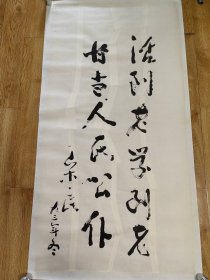 活到老学到老
甘当人民公仆
九三年冬